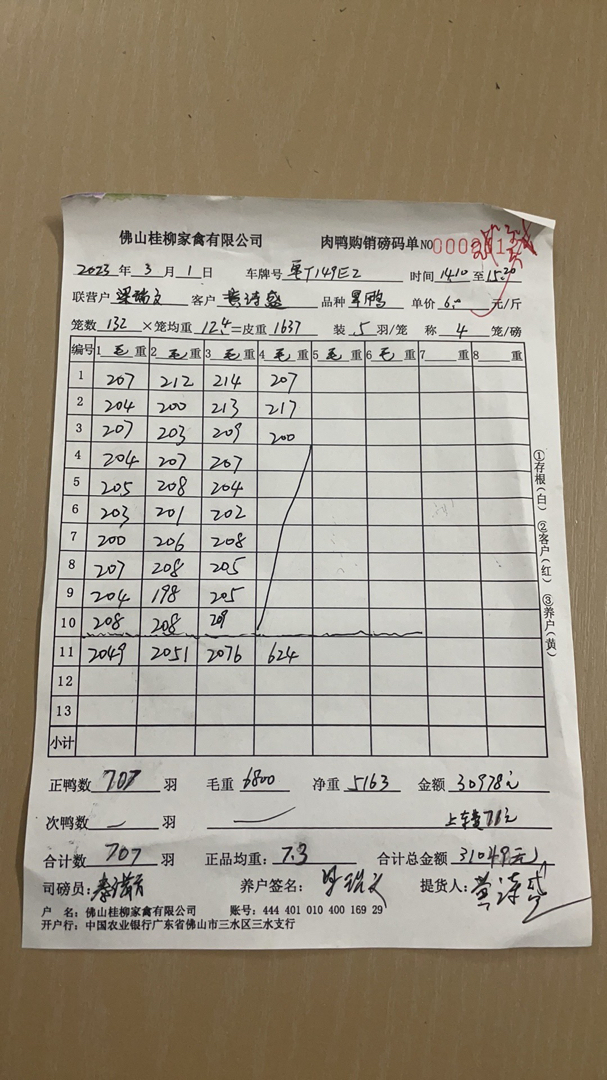 佛山桂柳家禽有限公司 肉鸭购销磅码单 NO
2023 年 3 月 1 日 车牌号 粤T149E2 时间 1410 至 1520
联营户 梁瑞文 客户 黄诗 品种 旱鸭 单价 6.0 元/斤
笼数 132 ×笼均重 12.4 =皮重 1637 装 5 羽/笼 称 4 笼/磅
编号 1 毛 重 2 毛 重 3 毛 重 4 毛 重 5 毛 重 6 毛 重 7 重 8 重
1 207 212 214 207
2 204 200 213 217
3 207 203 209 200
4 204 207 207
5 205 208 204
6 203 201 202
7 200 206 208
8 207 208 205
9 204 198 205
10 208 208 209
11 2049 2051 2076 624
12
13
小计
①存根(白) ②客户(红) ③养户(黄)
正鸭数 707 羽 毛重 6800 净重 5163 金额 30978元
次鸭数 — 羽 上车费71元
合计数 707 羽 正品均重: 7.3 合计总金额 31049元
司磅员: 养户签名: 提货人: 黄诗
户 名: 佛山桂柳家禽有限公司 账号: 444 401 010 400 169 29
开户行: 中国农业银行广东省佛山市三水区三水支行